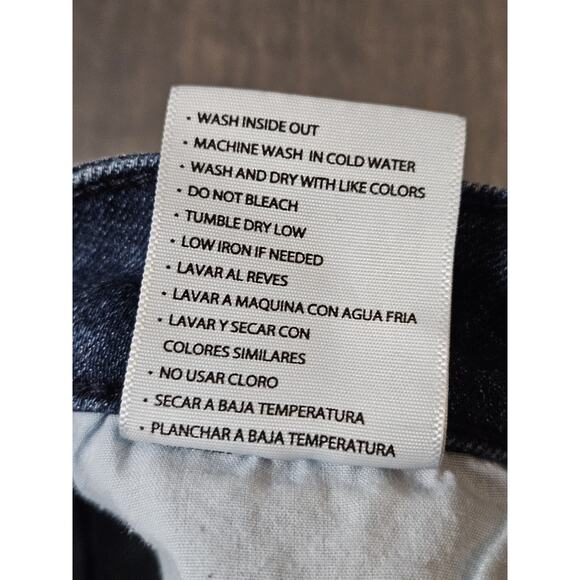 · WASH INSIDE OUT
· MACHINE WASH IN COLD WATER
· WASH AND DRY WITH LIKE COLORS
· DO NOT BLEACH
· TUMBLE DRY LOW
· LOW IRON IF NEEDED
· LAVAR AL REVES
· LAVAR A MAQUINA CON AGUA FRIA
· LAVAR Y SECAR CON
COLORES SIMILARES
· NO USAR CLORO
· SECAR A BAJA TEMPERATURA
· PLANCHAR A BAJA TEMPERATURA